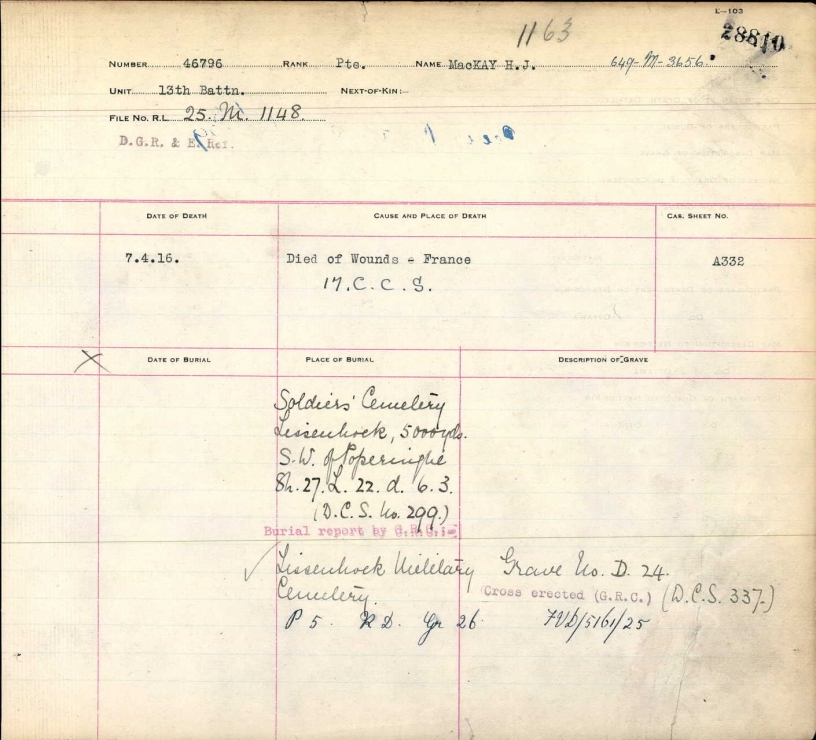 L—103
1163
28810
NUMBER 46796 RANK Pte. NAME MacKAY H.J. 649-M-3656
UNIT 13th Battn. NEXT-OF-KIN:—
FILE NO. R.L. 25. M. 1148.
D.G.R. & E. Ref.
DATE OF DEATH CAUSE AND PLACE OF DEATH CAS. SHEET NO.
7.4.16. Died of Wounds - France A332
17. C. C. S.
X DATE OF BURIAL PLACE OF BURIAL DESCRIPTION OF GRAVE
Soldiers' Cemetery
Lissenhoek, 5000 yds.
S.W. of Poperinghe
Sh. 27. L. 22. d. 6.3.
(D.C.S. No. 299.)
Burial report by G.R.C.:-
Lissenhoek Military Grave No. D. 24.
Cemetery. Cross erected (G.R.C.) (D.C.S. 337.)
P 5. R D. Gr 26 /5161/25